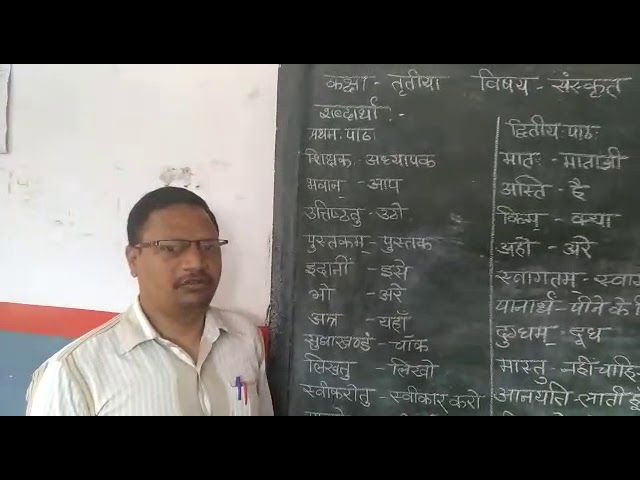 कक्षा - तृतीया विषय - संस्कृत
शब्दार्था :-
प्रथम: पाठ:
शिक्षक: अध्यापक
भवान् - आप
उत्तिष्ठतु - उठो
पुस्तकम् - पुस्तक
इदानीं - इसे
भो - अरे
अत्र - यहाँ
सुधाखण्डं - चॉक
लिखतु - लिखो
स्वीकरोतु - स्वीकार करो
द्वितीय: पाठ:
मात: - माताजी
अस्ति - है
किम् - क्या
अहो - अरे
स्वागतम् - स्वाग
पानार्थं - पीने के
दुग्धम् - दूध
मास्तु - नहीं चाहि
आनयति - लाती हू